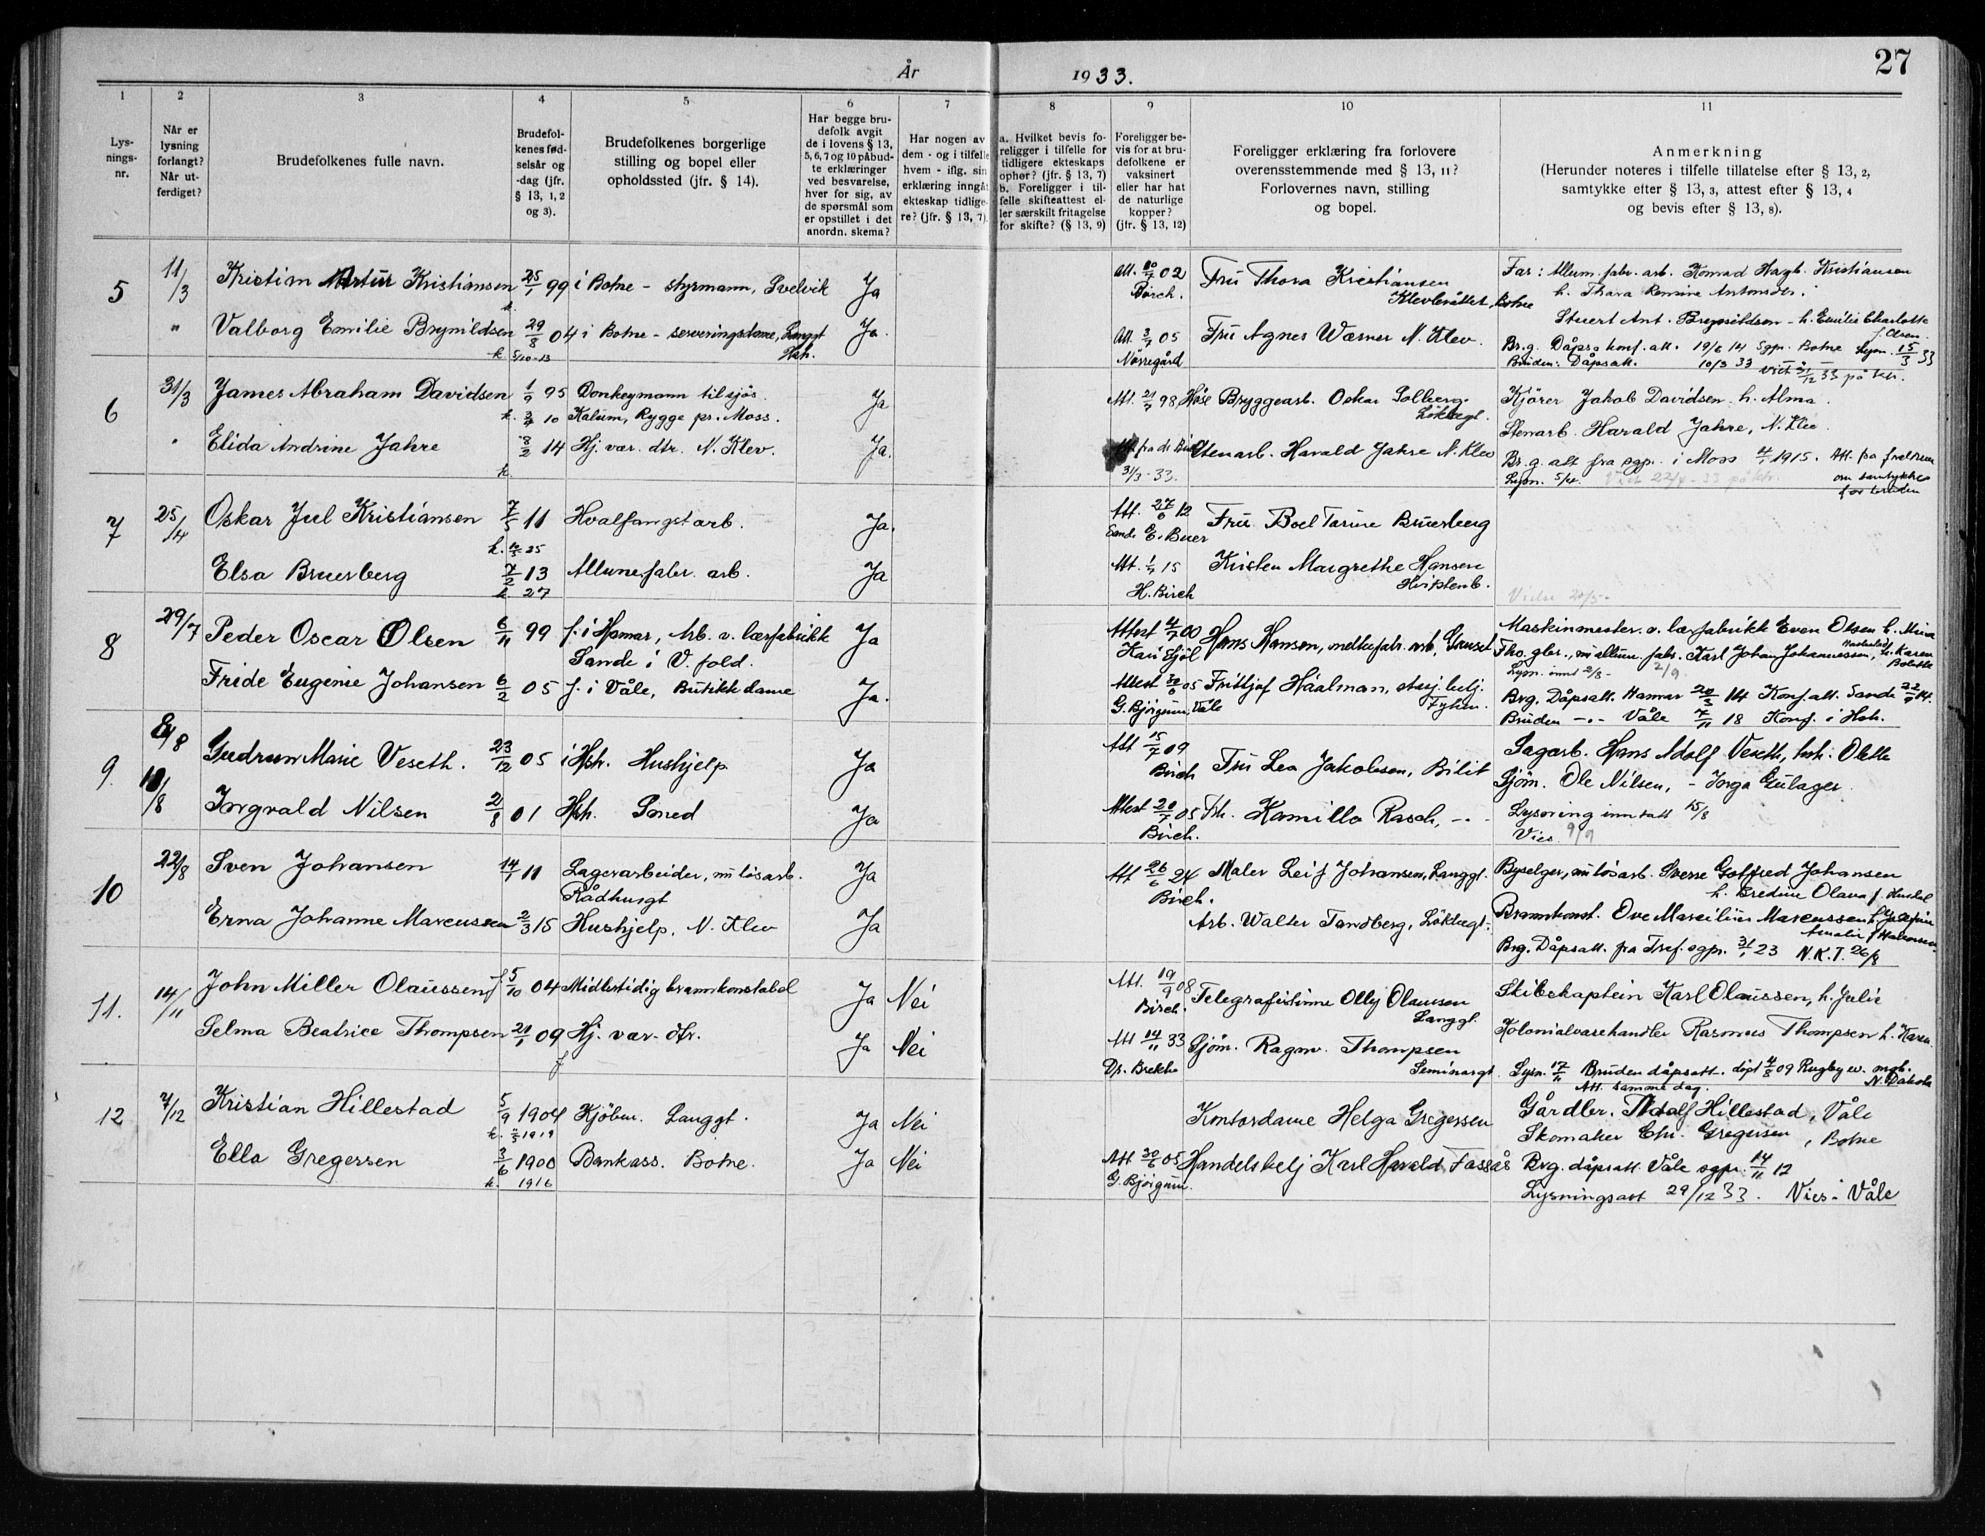 27
År 1933.
1 2 3 4 5 6 7 8 9 10 11
Lys-
nings-
nr.
Når er
lysning
forlangt?
Når ut-
ferdiget?
Brudefolkenes fulle navn.
Brudefol-
kenes fød-
selsår og
-dag (jfr.
§ 13, 1,2
og 3).
Brudefolkenes borgerlige
stilling og bopel eller
opholdssted (jfr. § 14).
Har begge bru-
defolk avgit
de i lovens § 13,
5, 6, 7 og 10 påbud-
te erklæringer
ved besvarelse,
hver for sig, av
de spørsmål som
er opstillet i det
anordn. skema?
Har nogen av
dem - og i tilfelle
hvem - iflg. sin
erklæring inngåt
ekteskap tidlige-
re? (jfr. § 13, 7).
a. Hvilket bevis fo-
religger i tilfelle for
tidligere ekteskaps
ophør? (jfr. § 13, 7)
b. Foreligger i til-
felle skifteattest el-
ler særskilt fritagelse
for skifte? (§ 13, 9)
Foreligger be-
vis for at bru-
defolkene er
vaksinert
eller har hat
de naturlige
kopper?
(jfr. § 13, 12)
Foreligger erklæring fra forlovere
overensstemmende med § 13, 11?
Forlovernes navn, stilling
og bopel.
Anmerkning
(Herunder noteres i tilfelle tillatelse efter § 13, 2,
samtykke efter § 13, 3, attest efter § 13, 4
og bevis efter § 13, 8).
5 11/3 Kristian Artur Kristiansen 25/1 99 i Botne - styrmann, Svelvik Ja
Att. 02 Birch. Fru Thora Kristiansen
Klevbråttet, Botne
Far: Allum. fabr. arb. Konrad Hagb. Kristiansen
h. Thara Antonsdtr.
" Valborg Emilie Brynildsen 29/8 04 i Botne - serveringsdame, Langgt Ja.
k 5/10-13 Hsh.
Att. 3/7 05 Fru Agnes Wærner N. Klev.
Nørregård
Stuert Ant. Brynildsen - h. Emilie Charlotte
Br.g. Dåps o konf. att. 19/6 14 Sgpr. Botne Lysn. 15/3 33
Bruden: Dåpsatt. 10/3 33 på ktr.
6 31/3 James Abraham Davidsen 1/9 95 Donkeymann tilsjøs. Ja
k. 10 Kalum, Rygge pr. Moss.
Att. 21/7 98, Høse Bryggearb. Oskar Solberg.
Løkkegt.
Kjører Jakob Davidsen h. Alma.
" Elida Andrine Jahre 8/2 14 Hj. vær. dtr. N. Klev. Ja.
k
Att. fra dr. Stenarb. Harald Jahre N. Klev
31/3-33.
Stenarb. Harald Jahre, N. Klev
Br.g. att fra sgpr. i Moss 1915. Att. fra
Lysn. 5/4. Vies 22/4-33 på ktr. om samtykke
for bruden
7 25/4 Oskar Juel Kristiansen 7/5 11 Hvalfangstarb. Ja.
k. 25
Att. 27/6 12 Fru Boel Tarine Bruerberg
Sande E. Beer
Elsa Bruerberg 7/2 13 Allum.fabr. arb. Ja
k 27
Att. 1/7 15 Kirsten Margrethe Hansen
H. Birch Hvistenb.
Vielse 20/5-
8 29/7 Peder Oscar Olsen 6/11 99 f. i Hamar, Arb. v. lærfabrikk Ja
Sande i V. fold.
Attest 4/7 00 Hans Hansen, melkefabr. arb,
Maskinmester. v. lærfabrikk Even Olsen h. Mina
Fride Eugenie Johansen 6/2 05 f. i Våle, Butikkdame Ja.
Attest 30/6 05 Fritjof Håalman,
G. Bjørgum, Våle
Fho. gbr., nu allum. fabr. Karl Johan Johannessen, h. Karen Bolette
Lysn. innt 2/8- 2/9
Brg. Dåpsatt. Hamar 20/3 14 Konf.att. Sande 14.
Bruden -"- Våle 7/11 18 Konf. i Hsh.
9. 8/8 Gudrun Marie Veseth. 23/12 05 i Hsh. Hushjelp Ja
Att 15/7 09
Birch Fru Lea Jakobsen, Bilit
Sagarb. Hans Adolf Veseth, h. Olette
10/8 Ingvald Nilsen 2/8 01 Hsh. Smed Ja
Attest 20/7 05 Frk. Kamilla Rasch, -"-
Birch.
Sjøm. Ole Nilsen, - Inga Gulager
Lysning inntatt 15/8
Vies 9/9
10 22/8 Sven Johansen 14/1 11 Lagerarbeider, nu løsarb. Ja
Rådhusgt
Att 26/6 24 Maler Leif Johansen, Langgt.
Birch.
Byselger, nu løsarb. Sverre Gotfred Johansen
h. Bredine Olava f.
Erna Johanne Marcussen 2/3 15 Hushjelp, N. Klev Ja
Arb. Walter Tandberg, Løkkegt.
Brannkonst. Ove Marcilius Marcussen
Brg. Dåpsatt. fra Tref. sgpr. 31/1 23 N.K.T. 26/8
11. 14/11 John Miller Olaussen f. 5/10 04 Midlertidig brannkonstabel Ja Nei
Att. 19/9 08
Birch. Telegrafistinne Olly Olaussen
Langgt.
Skibskaptein Karl Olaussen, h. Julie
Selma Beatrice Thompsen 21/1 09 Hj. vær. dtr. Ja Nei
f
Att 14/11 33 Sjøm. Ragnv. Thompsen
Dr. Brekke Seminargt.
Kolonialvarehandler Rasmus Thompsen h. Karen.
Lysn. 17/11 Bruden dåpsatt. døpt 4/8 09 Rugby ev. mgh.
Att. samme dag. N. Dakota
12 7/12 Kristian Hillestad 5/9 1904 Kjøbm. Langgt. Ja Nei
k. 1919
Kontordame Helga Gregersen
Gårdbr. Adolf Hillestad, Våle
Skomaker Chr. Gregersen, Botne
Ella Gregersen 3/6 1900 Bankass. Botne. Ja Nei
k. 1916
Att 30/6 05 Handelsbetj Karl Harald Fossås
G. Bjørgum.
Brg. dåpsatt. Våle sgpr. 14/11 12
Lysningsatt 29/12 33. Vies i Våle